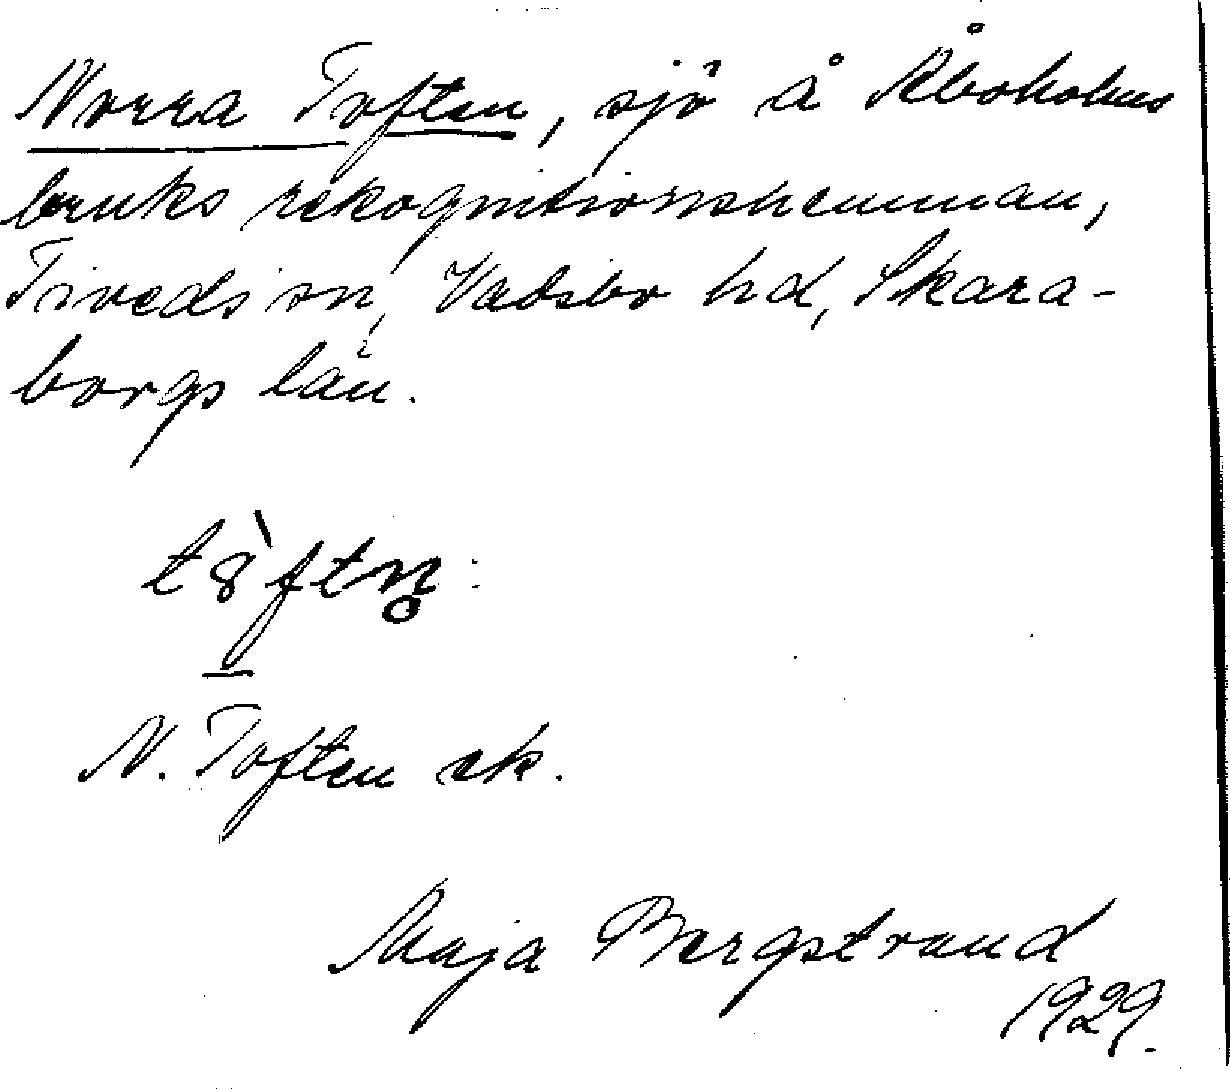 Norra Toften, sjö å Åboholms
bruks rekognitionshemman,
Tiveds sn, Vadsbo hd, Skara-
borgs län.
t8̀ftn̥:
N. Toften ek.
Maja Bergstrand
1929.